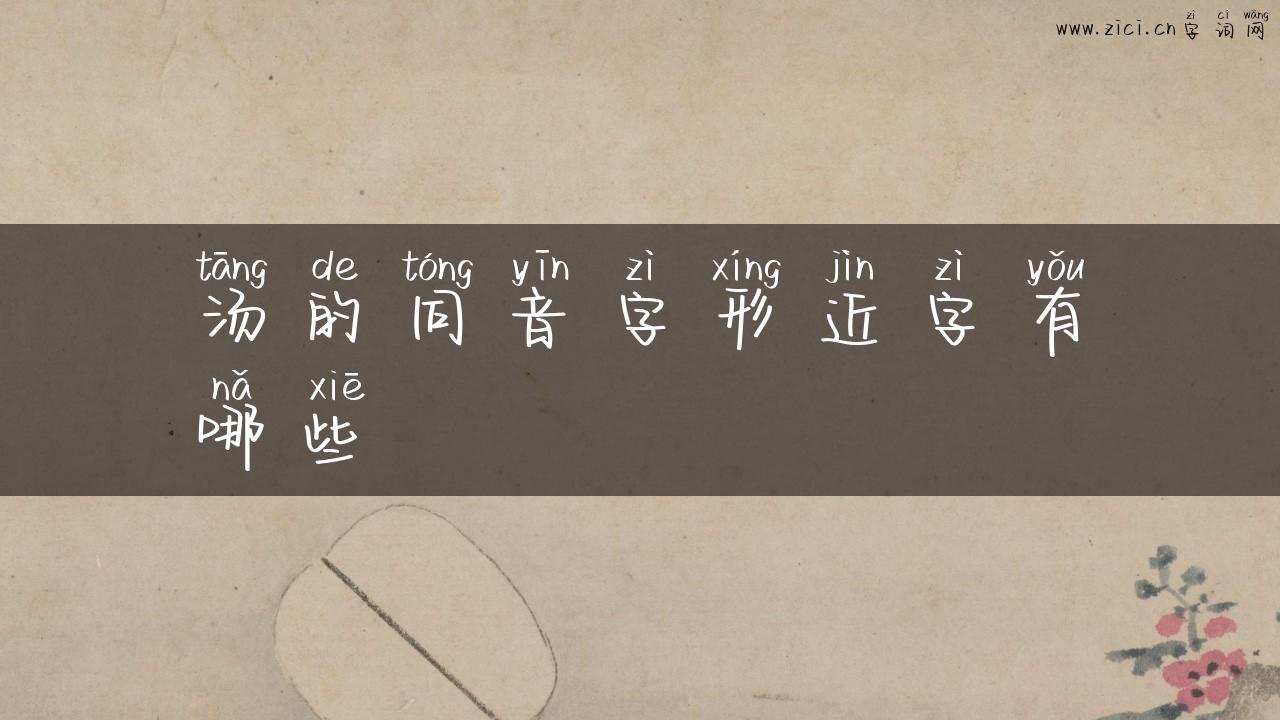 zì cí wǎng
www.zici.cn字词网
tāng de tóng yīn zì xíng jìn zì yǒu
汤的同音字形近字有
nǎ xiē
哪些